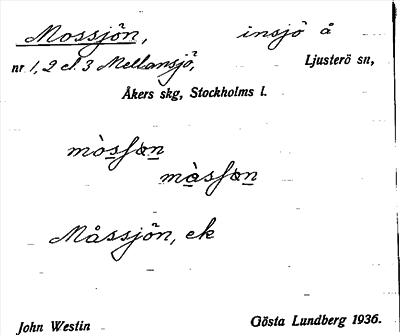 Mossjön, insjö å
nr 1, 2 el. 3 Mellansjö, Ljusterö sn,
Åkers skg, Stockholms l.
mòsʃən
màsʃən
Måssjön, ek
John Westin Gösta Lundberg 1936.